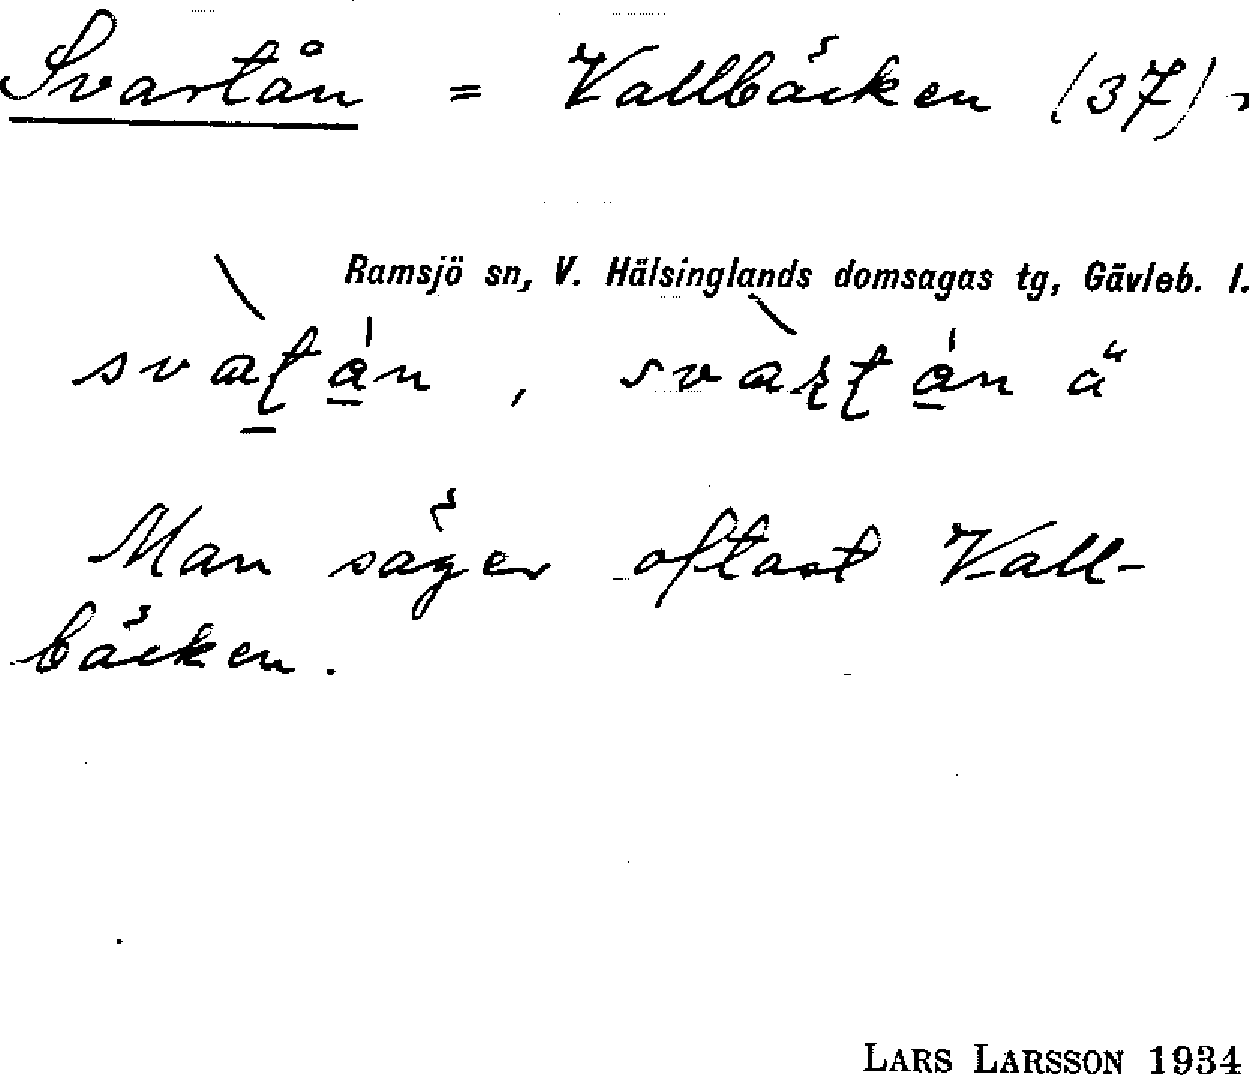 Svartån = Vallbäcken (37)
Ramsjö sn, V. Hälsinglands domsagas tg, Gävleb. l.
svatån, svartån ä
Man säger oftast Vall-
bäcken.
LARS LARSSON 1934